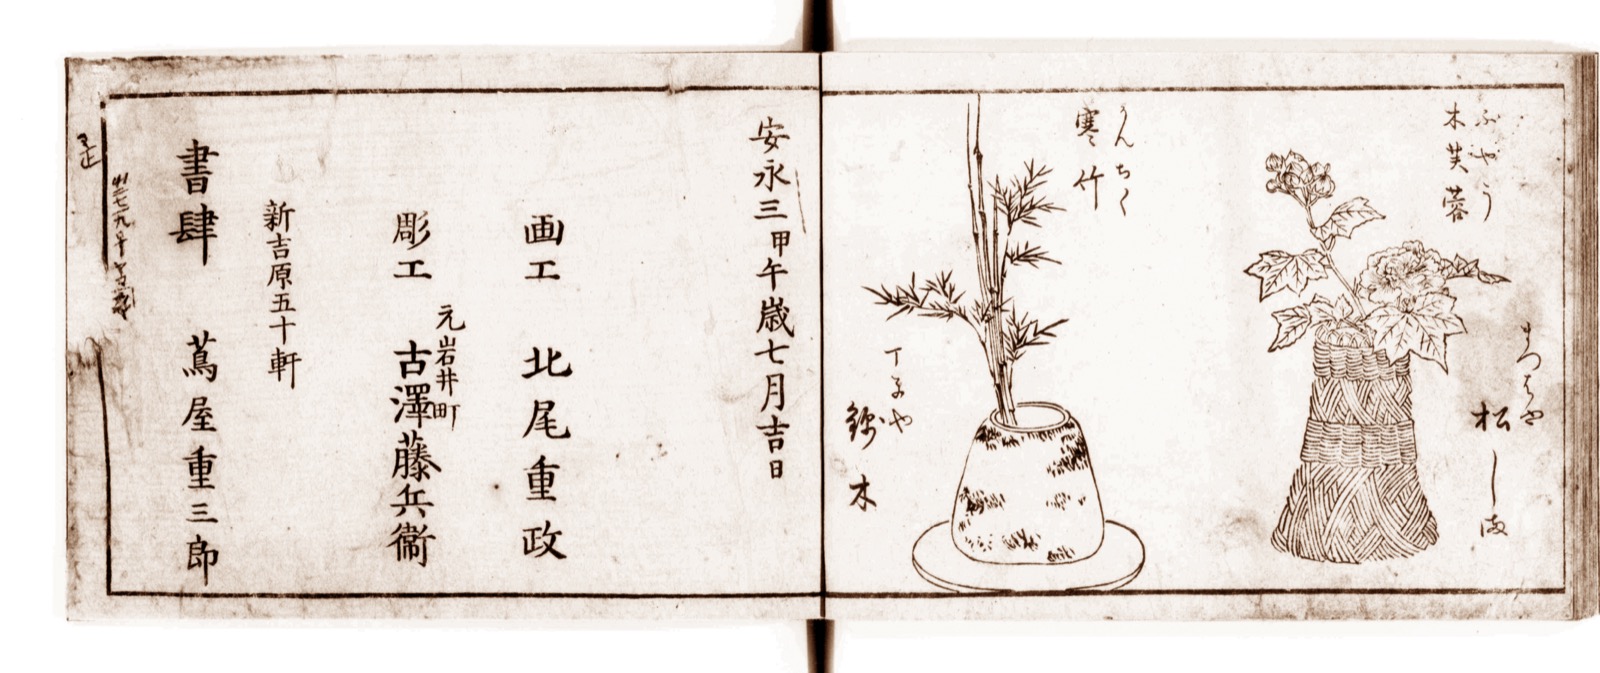 ふやう
木芙蓉
まつばや
松しま
かんちく
寒竹
丁子や
錦木
安永三甲午歳七月吉日
画工 北尾重政
元岩井町
彫工 古澤藤兵衞
新吉原五十軒
書肆 蔦屋重三郎